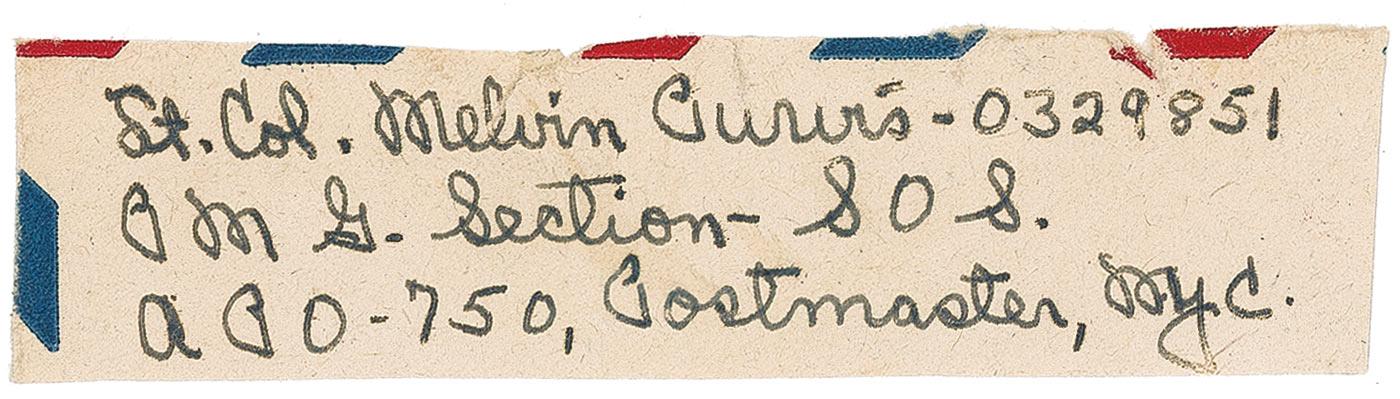 Lt. Col. Melvin Purvis - 0329851
P M G. Section - S O S.
A P O - 750, Postmaster, N.Y.C.